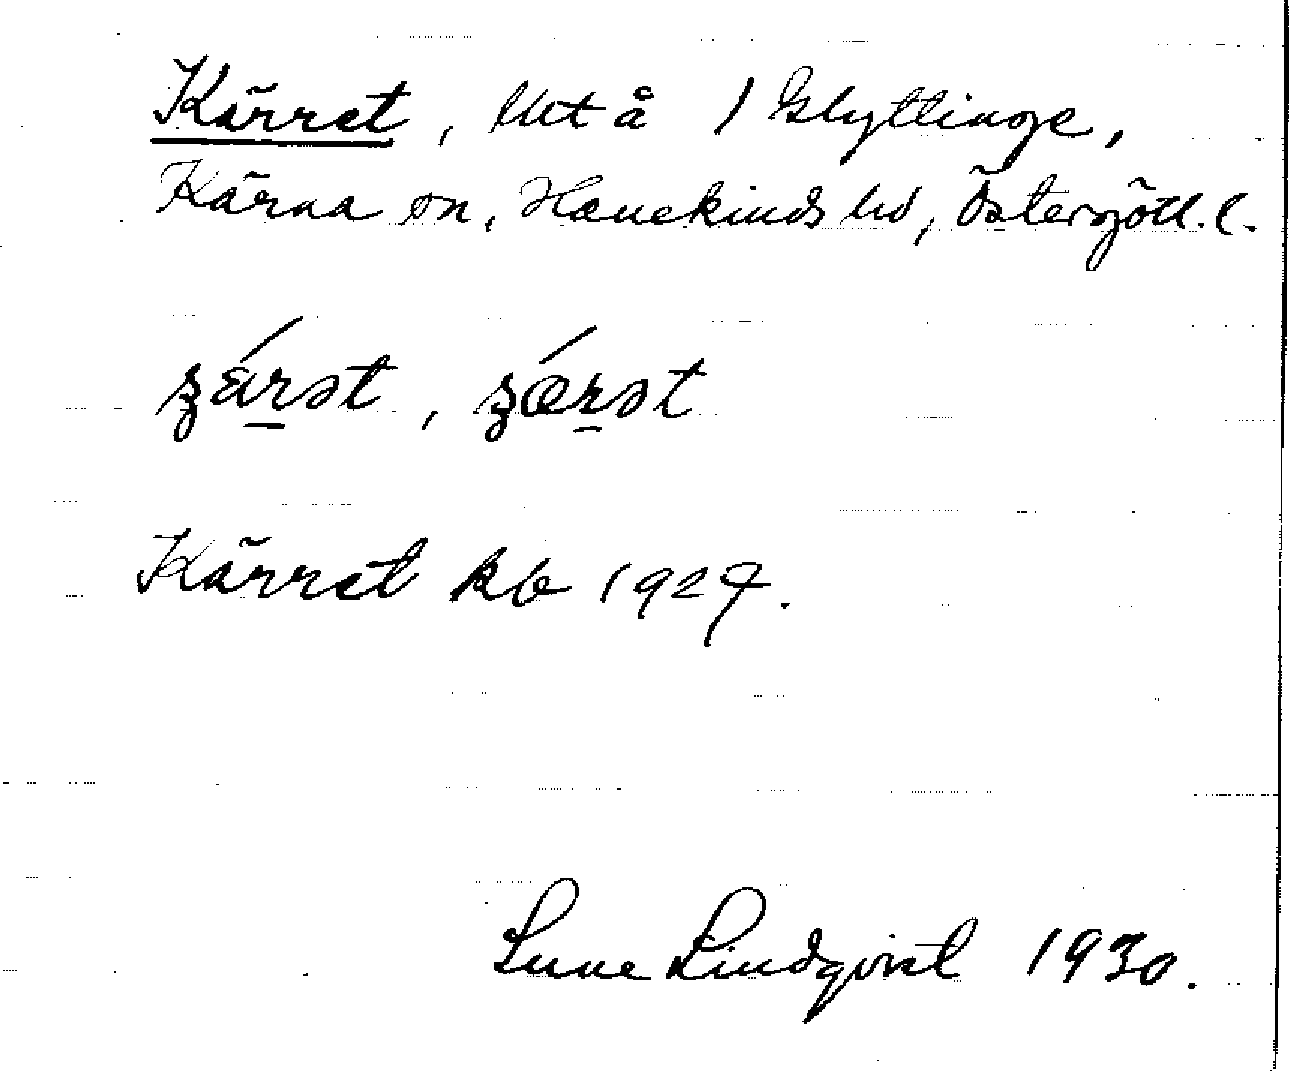 Kärret, lht å 1 Glyttinge,
Kärna sn, Hanekinds hd, Östergötl. l.
ʒárət, ʒǽrət
Kärret kb 1929.
Sune Lindqvist 1930.